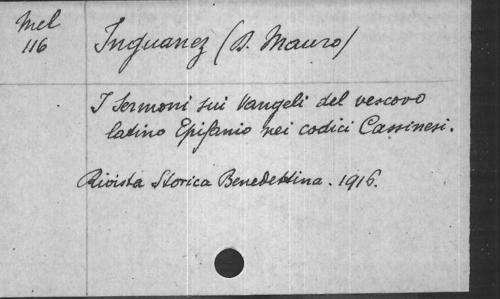 Mel
116
Inguanez (D. Mauro)
I Sermoni sui Vangeli del vescovo
latino Epifanio nei codici Cassinesi.
Rivista Storica Benedettina. 1916.